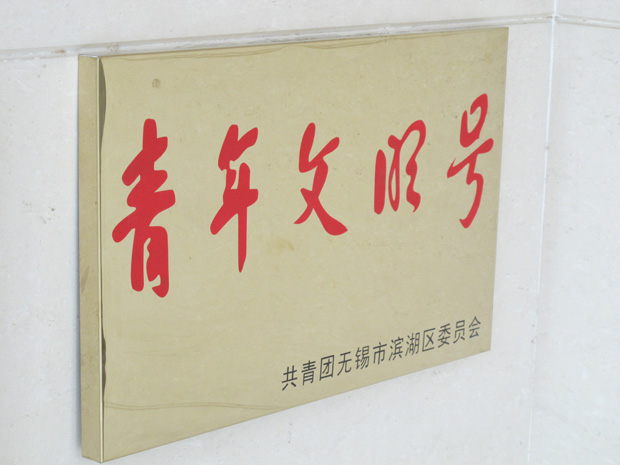 青年文明号
共青团无锡市滨湖区委员会